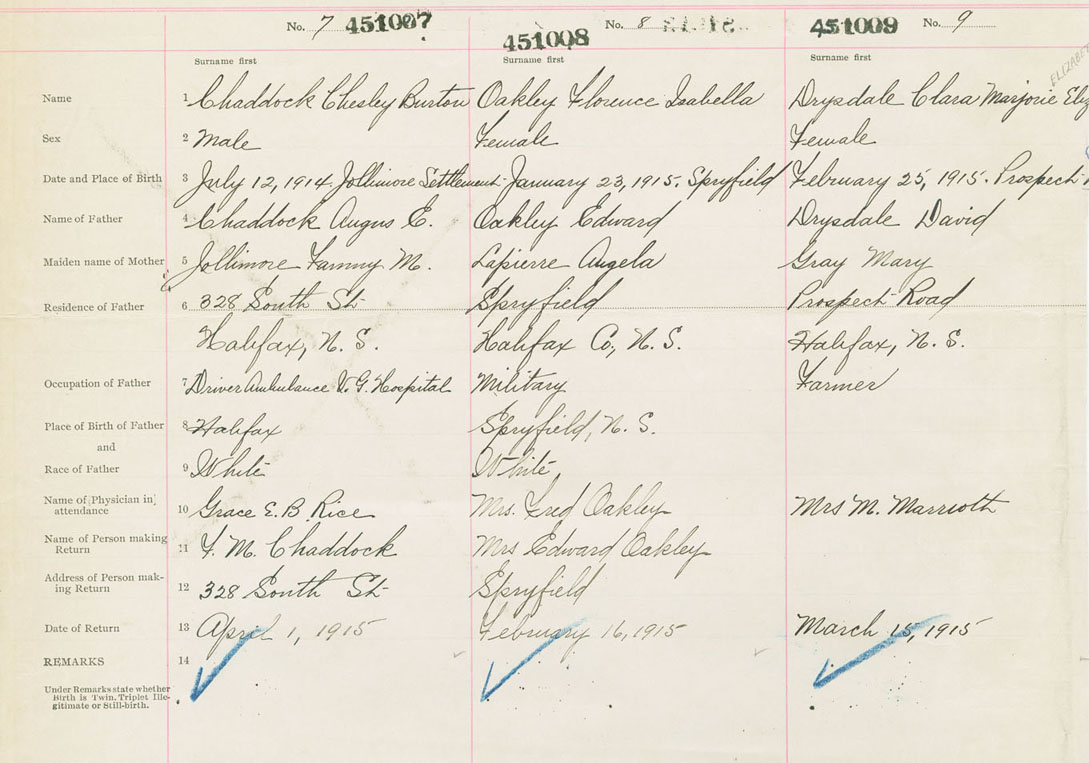 No. 7 451007 451008 No. 8 451009 No. 9
Surname first Surname first Surname first
Name 1 Chaddock Chesley Burton Oakley Florence Isabella Drysdale Clara Marjorie
Sex 2 Male Female Female
Date and Place of Birth 3 July 12, 1914. Jollimore Settlement January 23, 1915. Spryfield February 25, 1915. Prospect
Name of Father 4 Chaddock Angus E. Oakley Edward Drysdale David
Maiden name of Mother 5 Jollimore Fanny M. Lapierre Angela Gray Mary
Residence of Father 6 328 South St Spryfield Prospect Road
Halifax, N. S. Halifax Co., N. S. Halifax, N. S.
Occupation of Father 7 Driver Ambulance V. G. Hospital Military Farmer
Place of Birth of Father 8 Halifax Spryfield, N. S.
and
Race of Father 9 White White
Name of Physician in attendance 10 Grace E. B. Rice Mrs. Fred Oakley Mrs M.
Name of Person making Return 11 F. M. Chaddock Mrs Edward Oakley
Address of Person mak-
ing Return 12 328 South St Spryfield
Date of Return 13 April 1, 1915 February 16, 1915 March 15, 1915
REMARKS 14
Under Remarks state whether
Birth is Twin. Triplet Ille-
gitimate or Still-birth.